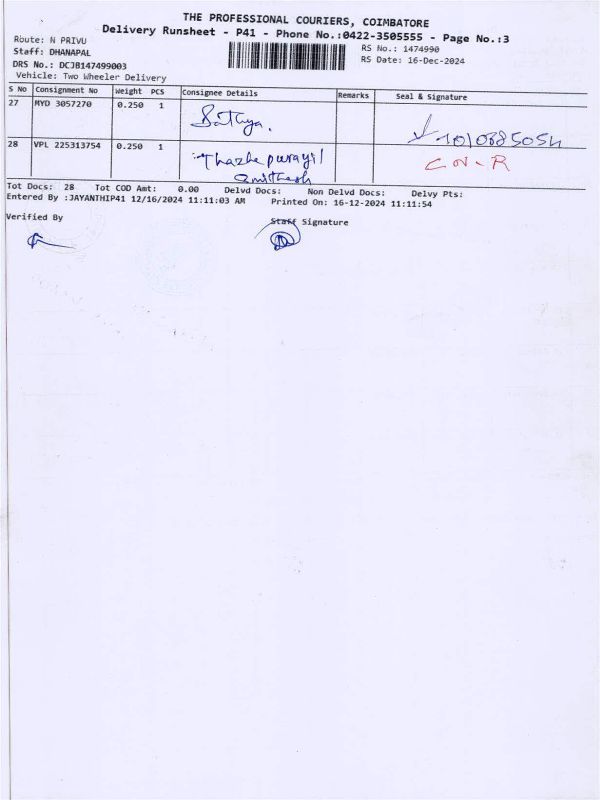 THE PROFESSIONAL COURIERS, COIMBATORE
Delivery Runsheet - P41 - Phone No.:0422-3505555 - Page No.:3
Route: N PRIVU
RS No.: 1474990
Staff: DHANAPAL
RS Date: 16-Dec-2024
DRS No.: DCJB147499003
Vehicle: Two Wheeler Delivery
S No Consignment No Weight PCS Consignee Details Remarks Seal & Signature
27 MYD 3057270 0.250 1 Sathya.
28 VPL 225313754 0.250 1 Thazhe purayil
Tot Docs: 28 Tot COD Amt: 0.00 Delvd Docs: Non Delvd Docs: Delvy Pts:
Entered By :JAYANTHIP41 12/16/2024 11:11:03 AM Printed On: 16-12-2024 11:11:54
Verified By
Staff Signature